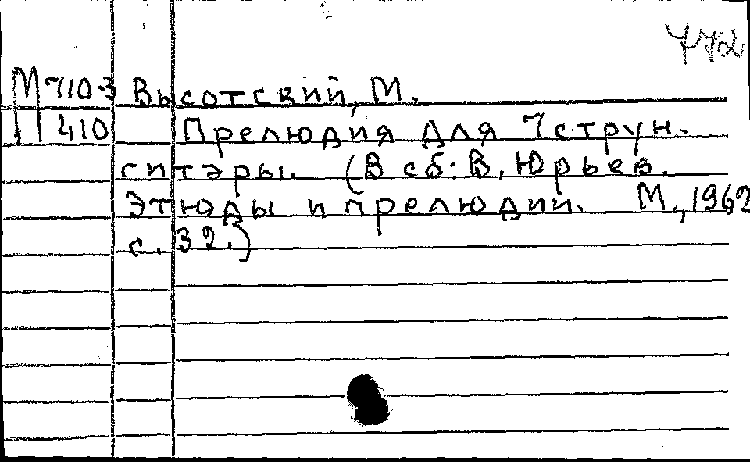 772
М710-3 Высотский, М.
410 Прелюдия для 7струн.
гитары. (В сб: В. Юрьев.
Этюды и прелюдии. М., 1962
с. 32.)